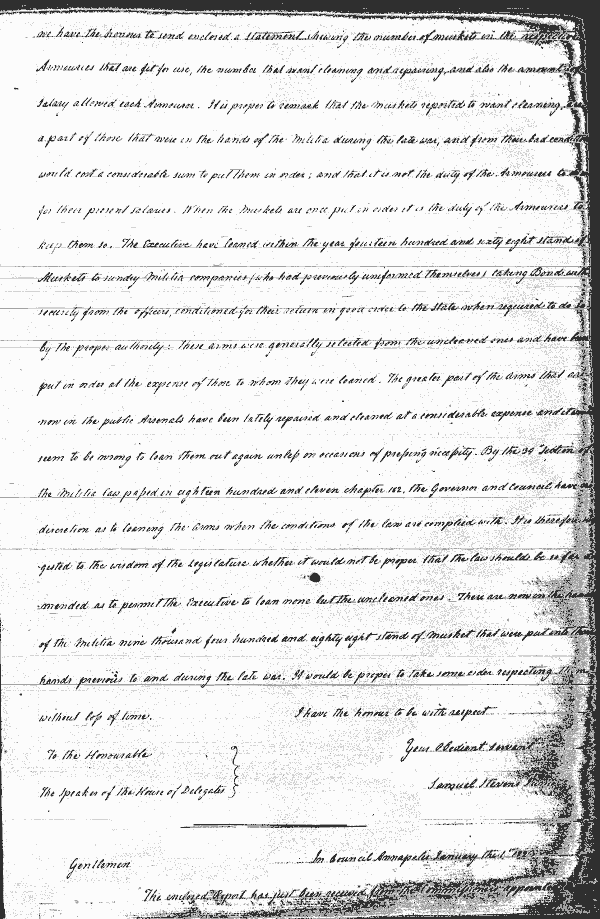 we have the honour to send enclosed a statement shewing the number of muskets in the respective
Armouries that are fit for use, the number that want cleaning and repairing, and also the amount of
salary allowed each Armourer. It is proper to remark that the muskets reported to want cleaning, are
a part of those that were in the hands of the Militia during the late war, and from their bad condition
would cost a considerable sum to put them in order; and that it is not the duty of the Armourers to
for their present salaries. When the Muskets are once put in order it is the duty of the Armourers to
keep them so. The Executive have loaned within the year fourteen hundred and sixty eight stands of
Muskets to sundry Militia companies (who had previously uniformed themselves) taking Bonds with
security from the officers, conditioned for their return in good order to the State when required to do so
by the proper authority: These arms were generally selected from the uncleaned ones and have been
put in order at the expense of those to whom they were loaned. The greater part of the arms that are
now in the public Arsenals have been lately repaired and cleaned at a considerable expense and it
seem to be wrong to loan them out again unless on occasions of pressing necessity. By the 39 Section of
the Militia law passed in eighteen hundred and eleven chapter 182, the Governor and Council have no
discretion as to loaning the arms when the conditions of the law are complied with. It is therefore
gested to the wisdom of the Legislature whether it would not be proper that the law should be so far a
mended as to permit the Executive to loan none but the uncleaned ones. There are now in the hands
of the Militia nine thousand four hundred and eighty eight stand of musket that were put into their
hands previous to and during the late war. It would be proper to take some order respecting
without loss of time. I have the honour to be with respect
Your Obedient Servant
To the Honourable
The Speaker of the House of Delegates
Samuel Stevens
In Council Annapolis January the
Gentlemen
The enclosed Report has just been received from the Commissioners appointed